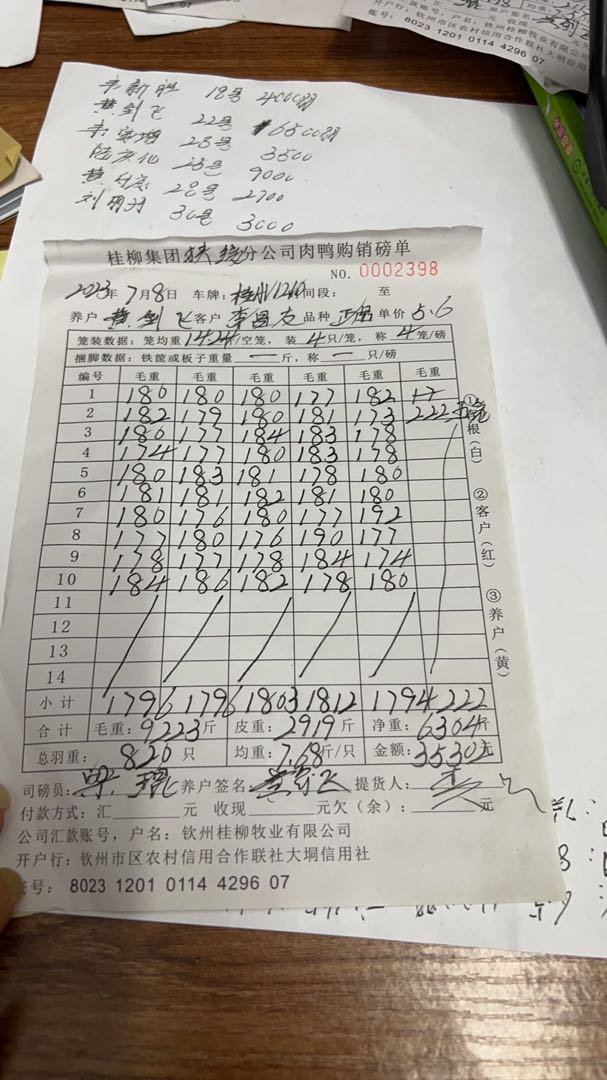 账号: 8023 1201 0114 4296 07
18号 4000羽
黄剑飞 22号 6500羽
23号 3500
陆庆化 25号 9000
黄 28号 2700
刘 30号 3000
桂柳集团扶绥分公司肉鸭购销磅单
NO. 0002398
2023年7月8日 车牌: 间段: 至
养户 黄剑飞 客户 李 品种 单价 5.6
笼装数据: 笼均重 14.24斤/空笼, 装 4 只/笼, 称 4 笼/磅
捆脚数据: 铁筐或板子重量 一 斤, 称 一 只/磅
编号 毛重 毛重 毛重 毛重 毛重 毛重
1 180 180 180 177 182 17
2 182 179 180 181 173 222
3 180 177 184 183 178
4 174 177 180 183 178
5 180 183 181 178 180
6 181 181 182 181 180
7 180 176 180 177 192
8 177 180 176 190 177
9 178 177 178 184 174
10 184 186 182 178 180
11
12
13
14
小计 1796 1796 1803 1812 1794 222
合计 毛重: 9223斤 皮重: 2919斤 净重: 6304斤
总羽重: 820只 均重: 7.68斤/只 金额: 35302元
司磅员: 养户签名: 黄剑飞 提货人:
付款方式: 汇 元 收现 元欠(余): 元
公司汇款账号, 户名: 钦州桂柳牧业有限公司
开户行: 钦州市区农村信用合作联社大垌信用社
账号: 8023 1201 0114 4296 07
①存根(白)
②客户(红)
③养户(黄)